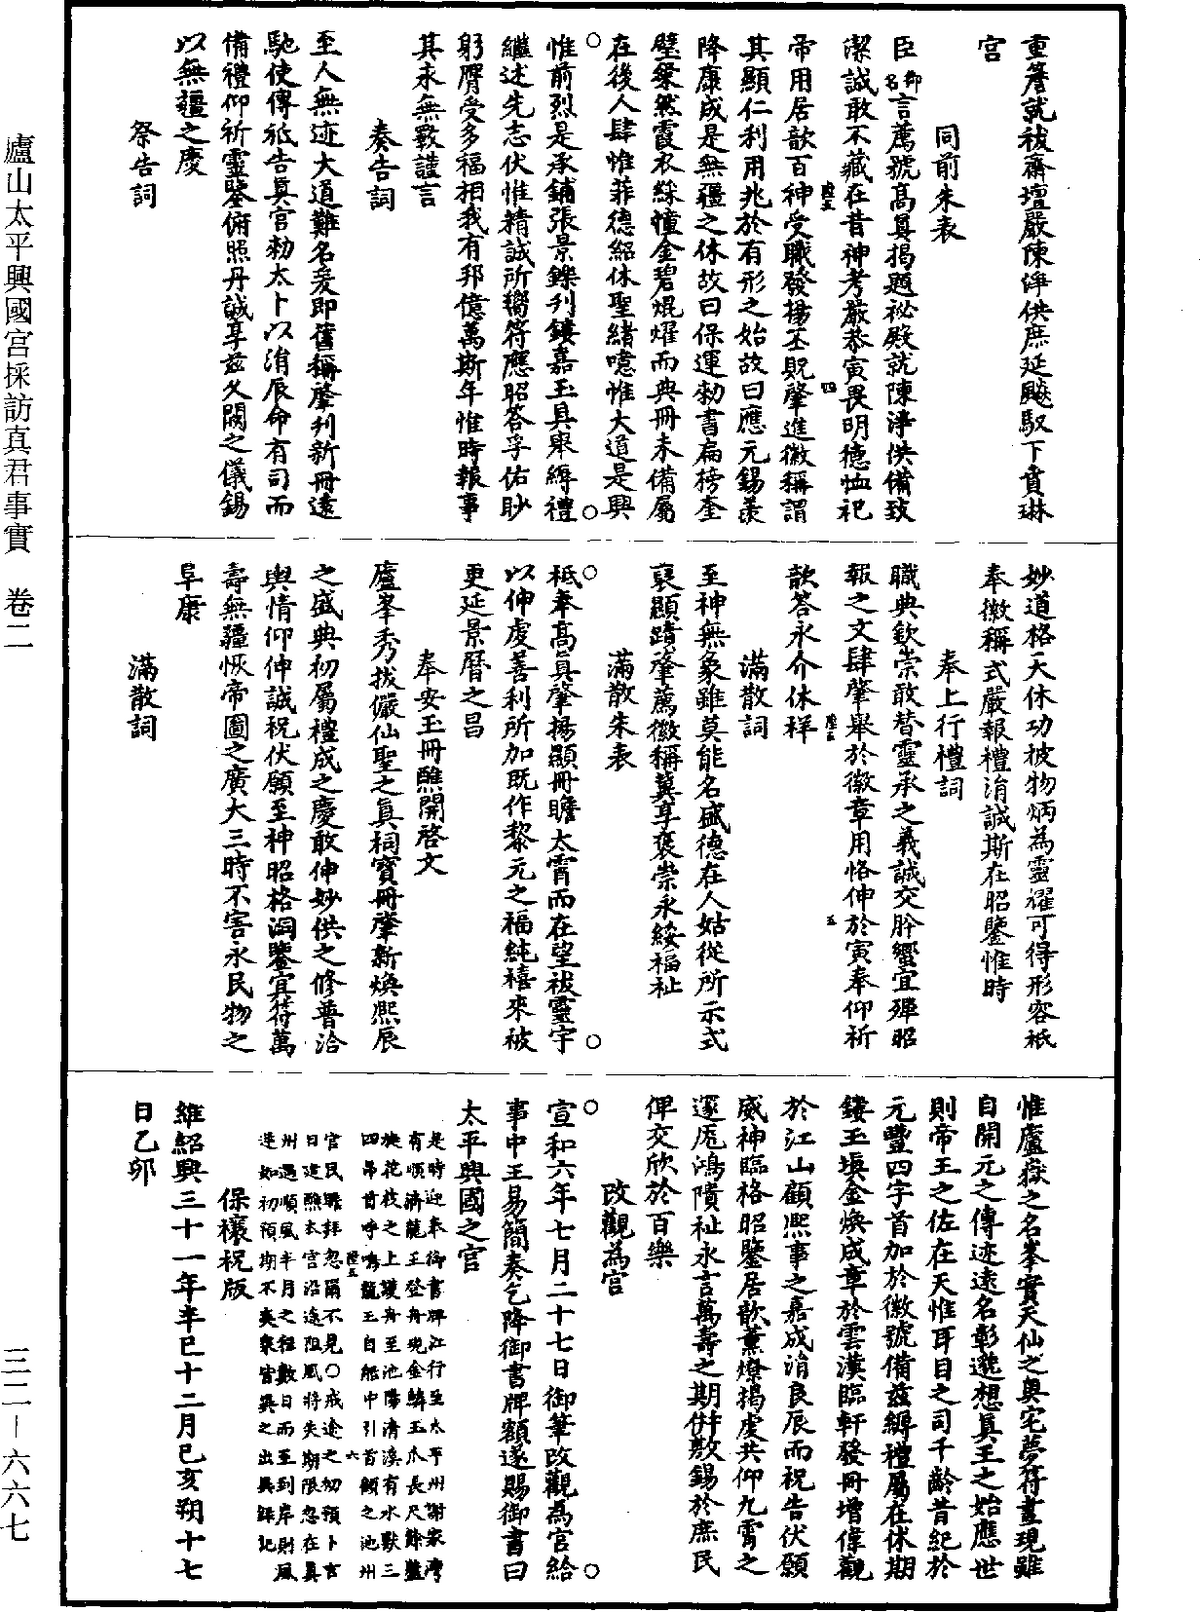 重簷就祓齋壇嚴陳淨供庶延飈馭下賁琳
宮
同前朱表
臣御名言薦號高眞揭題祕殿就陳淨供備致
潔誠敢不藏在昔神考嚴恭寅畏明德恤祀
帝用居歆百神受職發揚丕貺肇進徽稱謂
其顯仁利用兆於有形之始故曰應元錫羨
降康成是無疆之休故曰保運勑書扁榜奎
璧粲然霞衣綵幢金碧焜燿而典冊未備屬
在後人肆惟菲德紹休聖緒噫惟大道是興
惟前烈是承鋪張景鑠刋鏤嘉玉具舉縟禮
繼述先志伏惟精誠所嚮符應昭答孚佑眇
躬膺受多福相我有邦億萬斯年惟時報事
其永無斁謹言
奏告詞
至人無迹大道難名爰即舊稱肇刋新冊遠
馳使傳祇告眞宮勑太卜以涓辰命有司而
備禮仰祈靈鑒俯照丹誠享茲久闕之儀錫
以無疆之慶
祭告詞
妙道格天休功被物炳為靈濯可得形容祇
奉徽稱式嚴報禮涓誠斯在昭鑒惟時
奉上行禮詞
職典欽崇敢替靈承之義誠交肸蠁宜殫昭
報之文肆肇舉於徽章用恪伸於寅奉仰祈
歆答永介休祥
滿散詞
至神無象雖莫能名盛德在人姑從所示式
裒顯蹟肇薦徽稱冀享褒崇永綏福祉
滿散朱表
祗奉高眞肇揚顯冊瞻太霄而在望祓靈宇
以伸虔善利所加既作黎元之福純禧來被
更延景曆之昌
奉安玉冊醮開啓文
廬峯秀拔儼仙聖之眞祠寶冊肇新煥熙辰
之盛典初屬禮成之慶敢伸妙供之修普洽
輿情仰伸誠祝伏願至神昭格洞鑒宜符萬
壽無疆恢帝圖之廣大三時不害永民物之
阜康
滿散詞
惟廬嶽之名峯實天仙之奧宅夢符晝現雖
自開元之傳迹遠名彰邈想眞王之始應世
則帝王之佐在天惟耳目之司千齡昔紀於
元豐四字首加於徽號備茲縟禮屬在休期
鏤玉塡金煥成章於雲漢臨軒發冊增偉觀
於江山顧熙事之嘉成涓良辰而祝告伏願
威神臨格昭鑒居歆薰燎揭虔共仰九霄之
邃卮鴻隤祉永言萬壽之期併敷錫於庶民
俾交欣於百樂
改觀為宮
宣和六年七月二十七日御筆改觀為宮給
事中王易簡奏乞降御書牌額遂賜御書曰
太平興國之宮
是時迎奉御書牌江行至太平州謝家灣
有順濟龍王登舟現金鱗玉爪長尺餘盤
旋花枝之上護舟至池陽清溪有水獸三
四昂首呼喚龍王自船中引首顧之池州
官民瞻拜忽爾不見○戒途之初預卜宮
日建醮本宮沿途阻風將失期限忽在眞
州遇順風半月之程數日而至到岸則風
逆如初預期不爽衆皆異之出異錄記
保禳祝版
維紹興三十一年辛巳十二月己亥朔十七
日乙卯
廬山太平興國宮採訪真君事實　卷二
三二－六六七